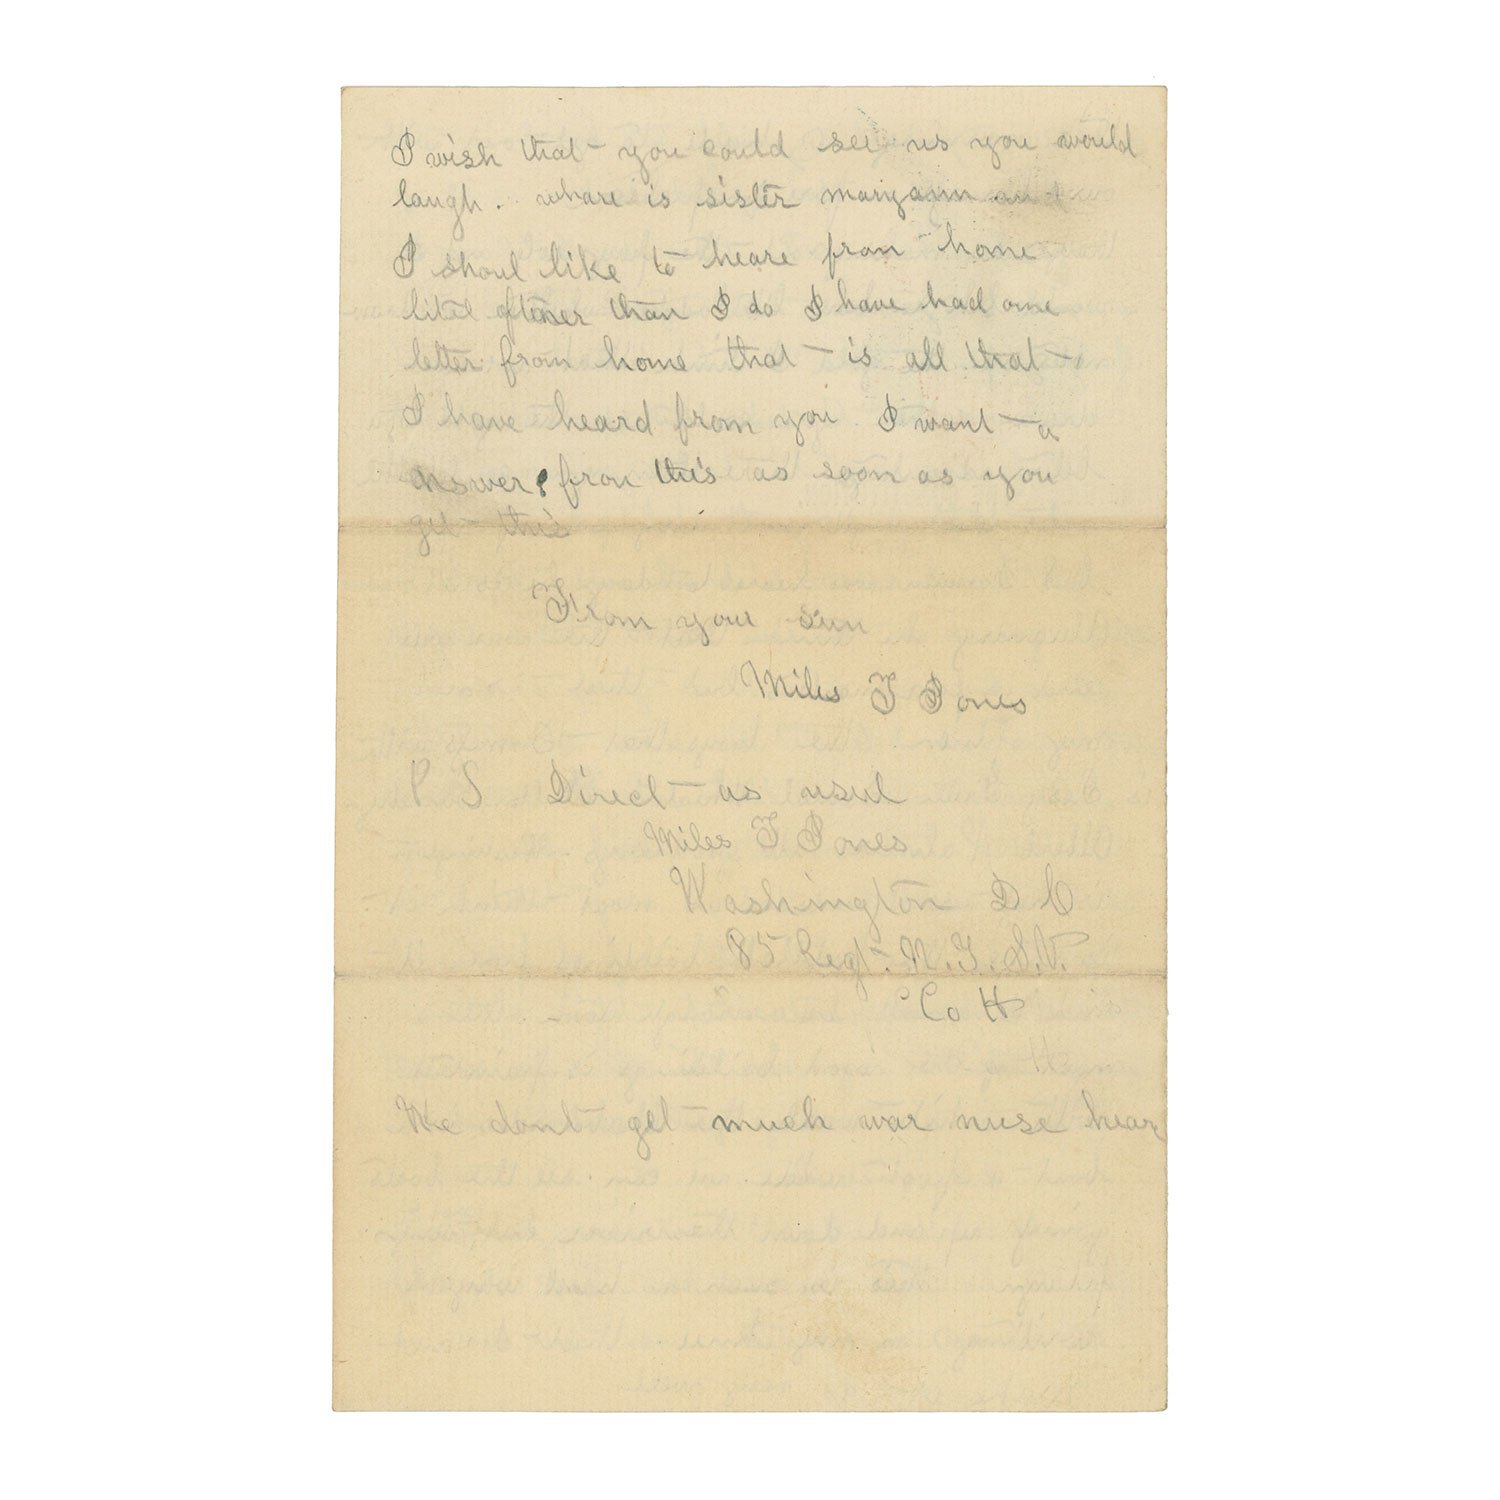 I wish that you could see us you would
laugh. whare is sister maryann and
I shoul like to heare fron home
litel oftener than I do I have had one
letter from home that is all that
I have heard from you I want a
answer fron this as soon as you
get this
From your sun
Miles T Jones
P S Direct as usul
Miles T Jones
Washington D C
85 Regt. N.Y.S.V.
Co H
We dont get much war nuse hear